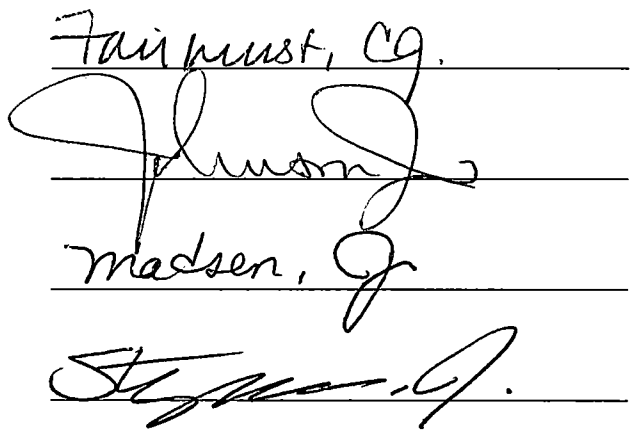 Fairhurst, CJ.
Johnson J
Madsen, J
Stephens, J.